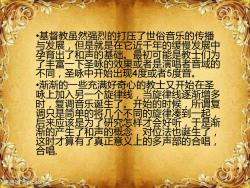 •基督教虽然强烈的打压了世俗音乐的传播
与发展，但是就是在它近千年的缓慢发展中
孕育出了和声的基础。最初可能是教士们为
了丰富一下圣咏的效果或者是演唱者音域的
不同，圣咏中开始出现4度或者5度音。
•渐渐的一些充满好奇心的教士又开始在圣
咏上加入另一个旋律线，当旋律线逐渐增多
时，复调音乐诞生了。开始的时候，所谓复
调只是简单的将几个不同的旋律凑到一起，
后来应该是为了研究怎样才会好听，于是渐
渐的产生了和声的概念，对位法也诞生了，
这时才算有了真正意义上的多声部的合唱，
合唱.